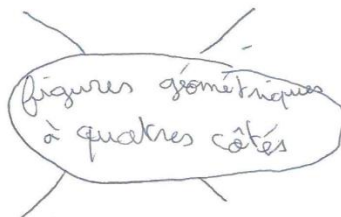 figures géométriques
à quatres côtés